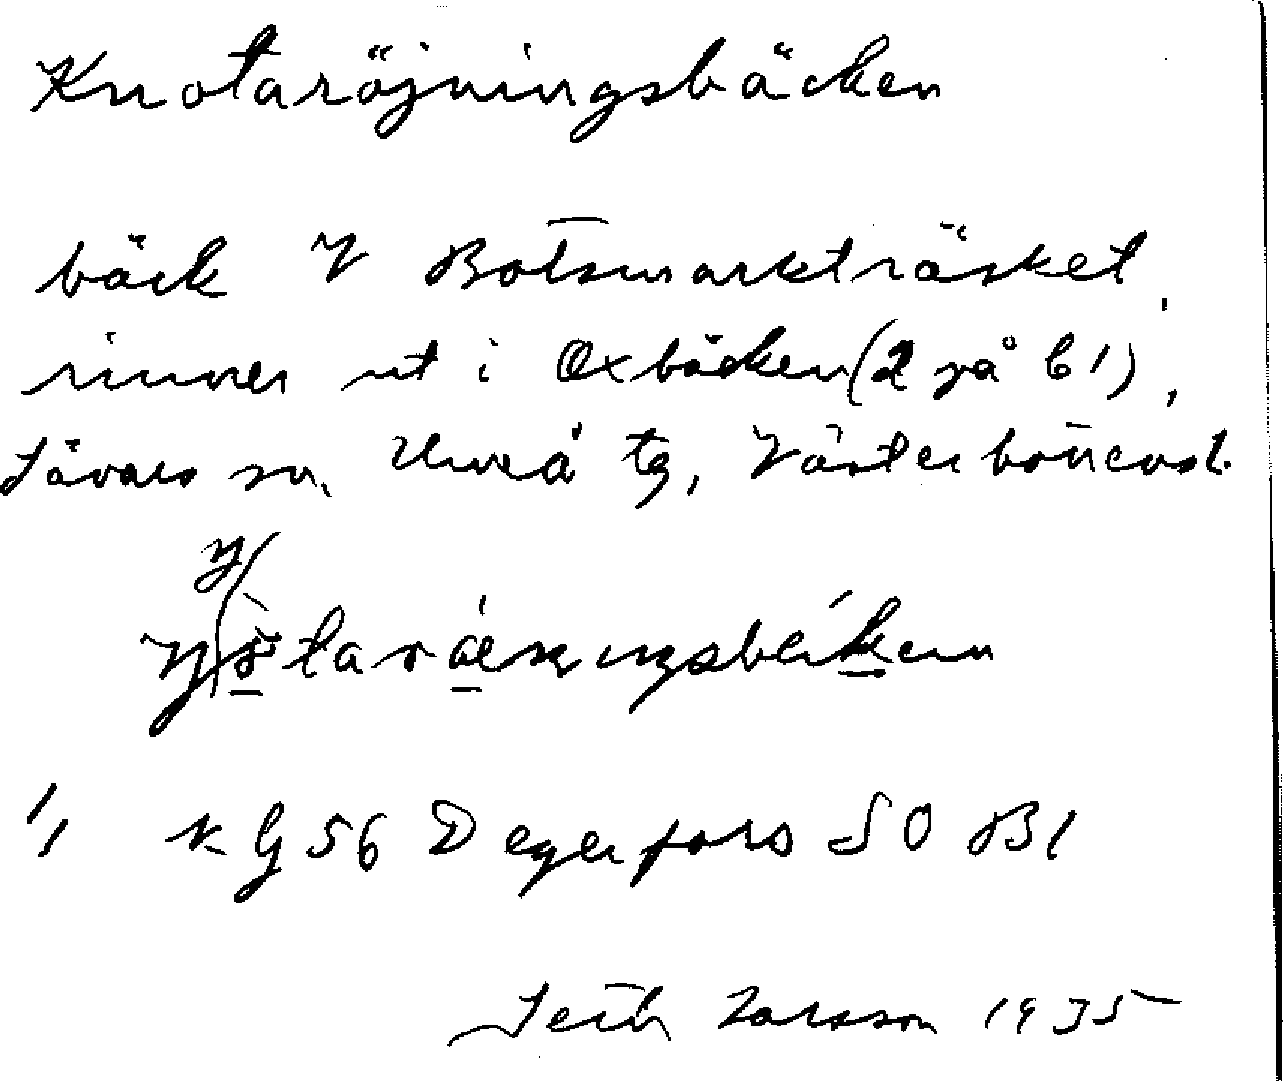 Knotaröjningsbäcken
bäck V Botsmarkträsket,
rinner ut i Oxbäcken (2 på b1),
Sävars sn. Umeå tg, Västerbottensl.
1/1 kG 56 Degerfors SO B1
Seth Larsson 1935